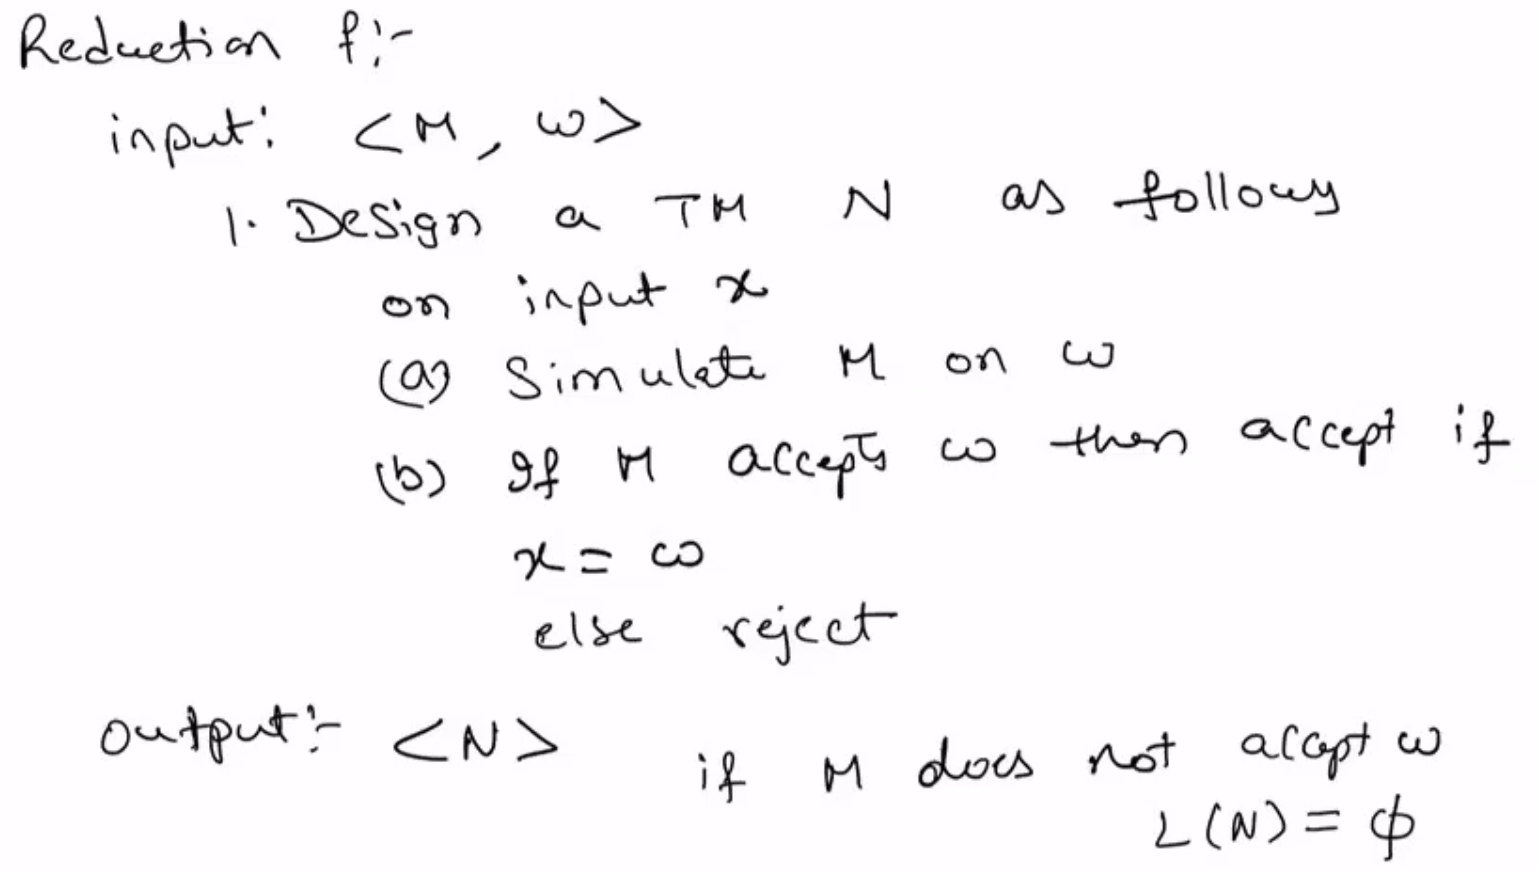 Reduction f:-
input: <M, w>
1. Design a TM N as follows
on input x
(a) Simulate M on w
(b) If M accepts w then accept if
x = w
else reject
output:- <N>
if M does not accept w
L(N) = ϕ